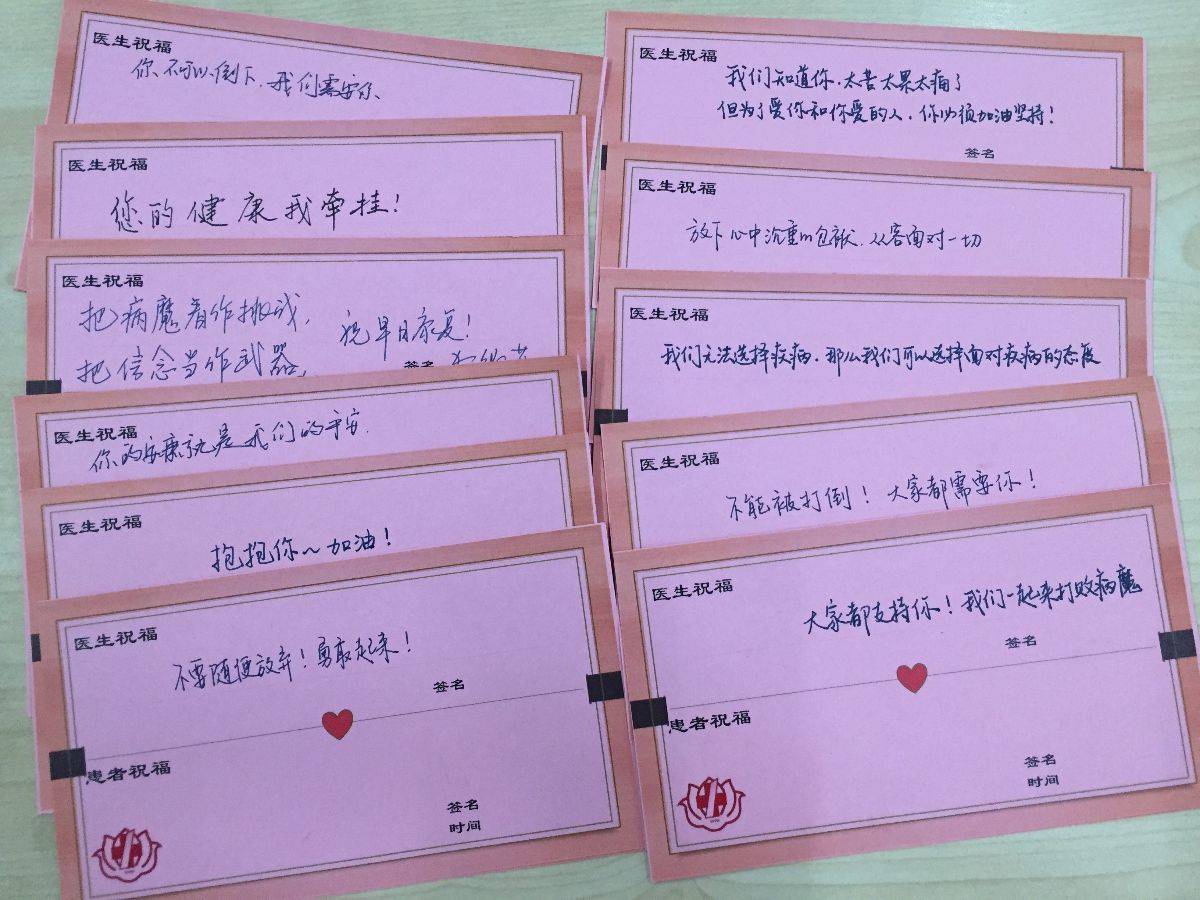 医生祝福
你不可以倒下,我们需要你
医生祝福
您的健康我牵挂!
医生祝福
把病魔看作挑战,
把信念当作武器,
祝早日康复!
签名
医生祝福
你的安康就是我们的平安.
医生祝福
抱抱你~加油!
医生祝福
不要随便放弃!勇敢起来!
签名
患者祝福
签名
时间
医生祝福
我们知道你,太苦太累太痛了
但为了爱你和你爱的人,你必须加油坚持!
签名
医生祝福
放下心中沉重的包袱,从容面对一切
医生祝福
我们无法选择疾病,那么我们可以选择面对疾病的态度
医生祝福
不能被打倒!大家都需要你!
医生祝福
大家都支持你!我们一起来打败病魔
签名
患者祝福
签名
时间